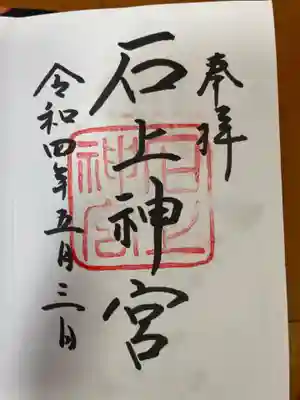 奉拝
石上神宮
石上神宮
令和四年五月三日